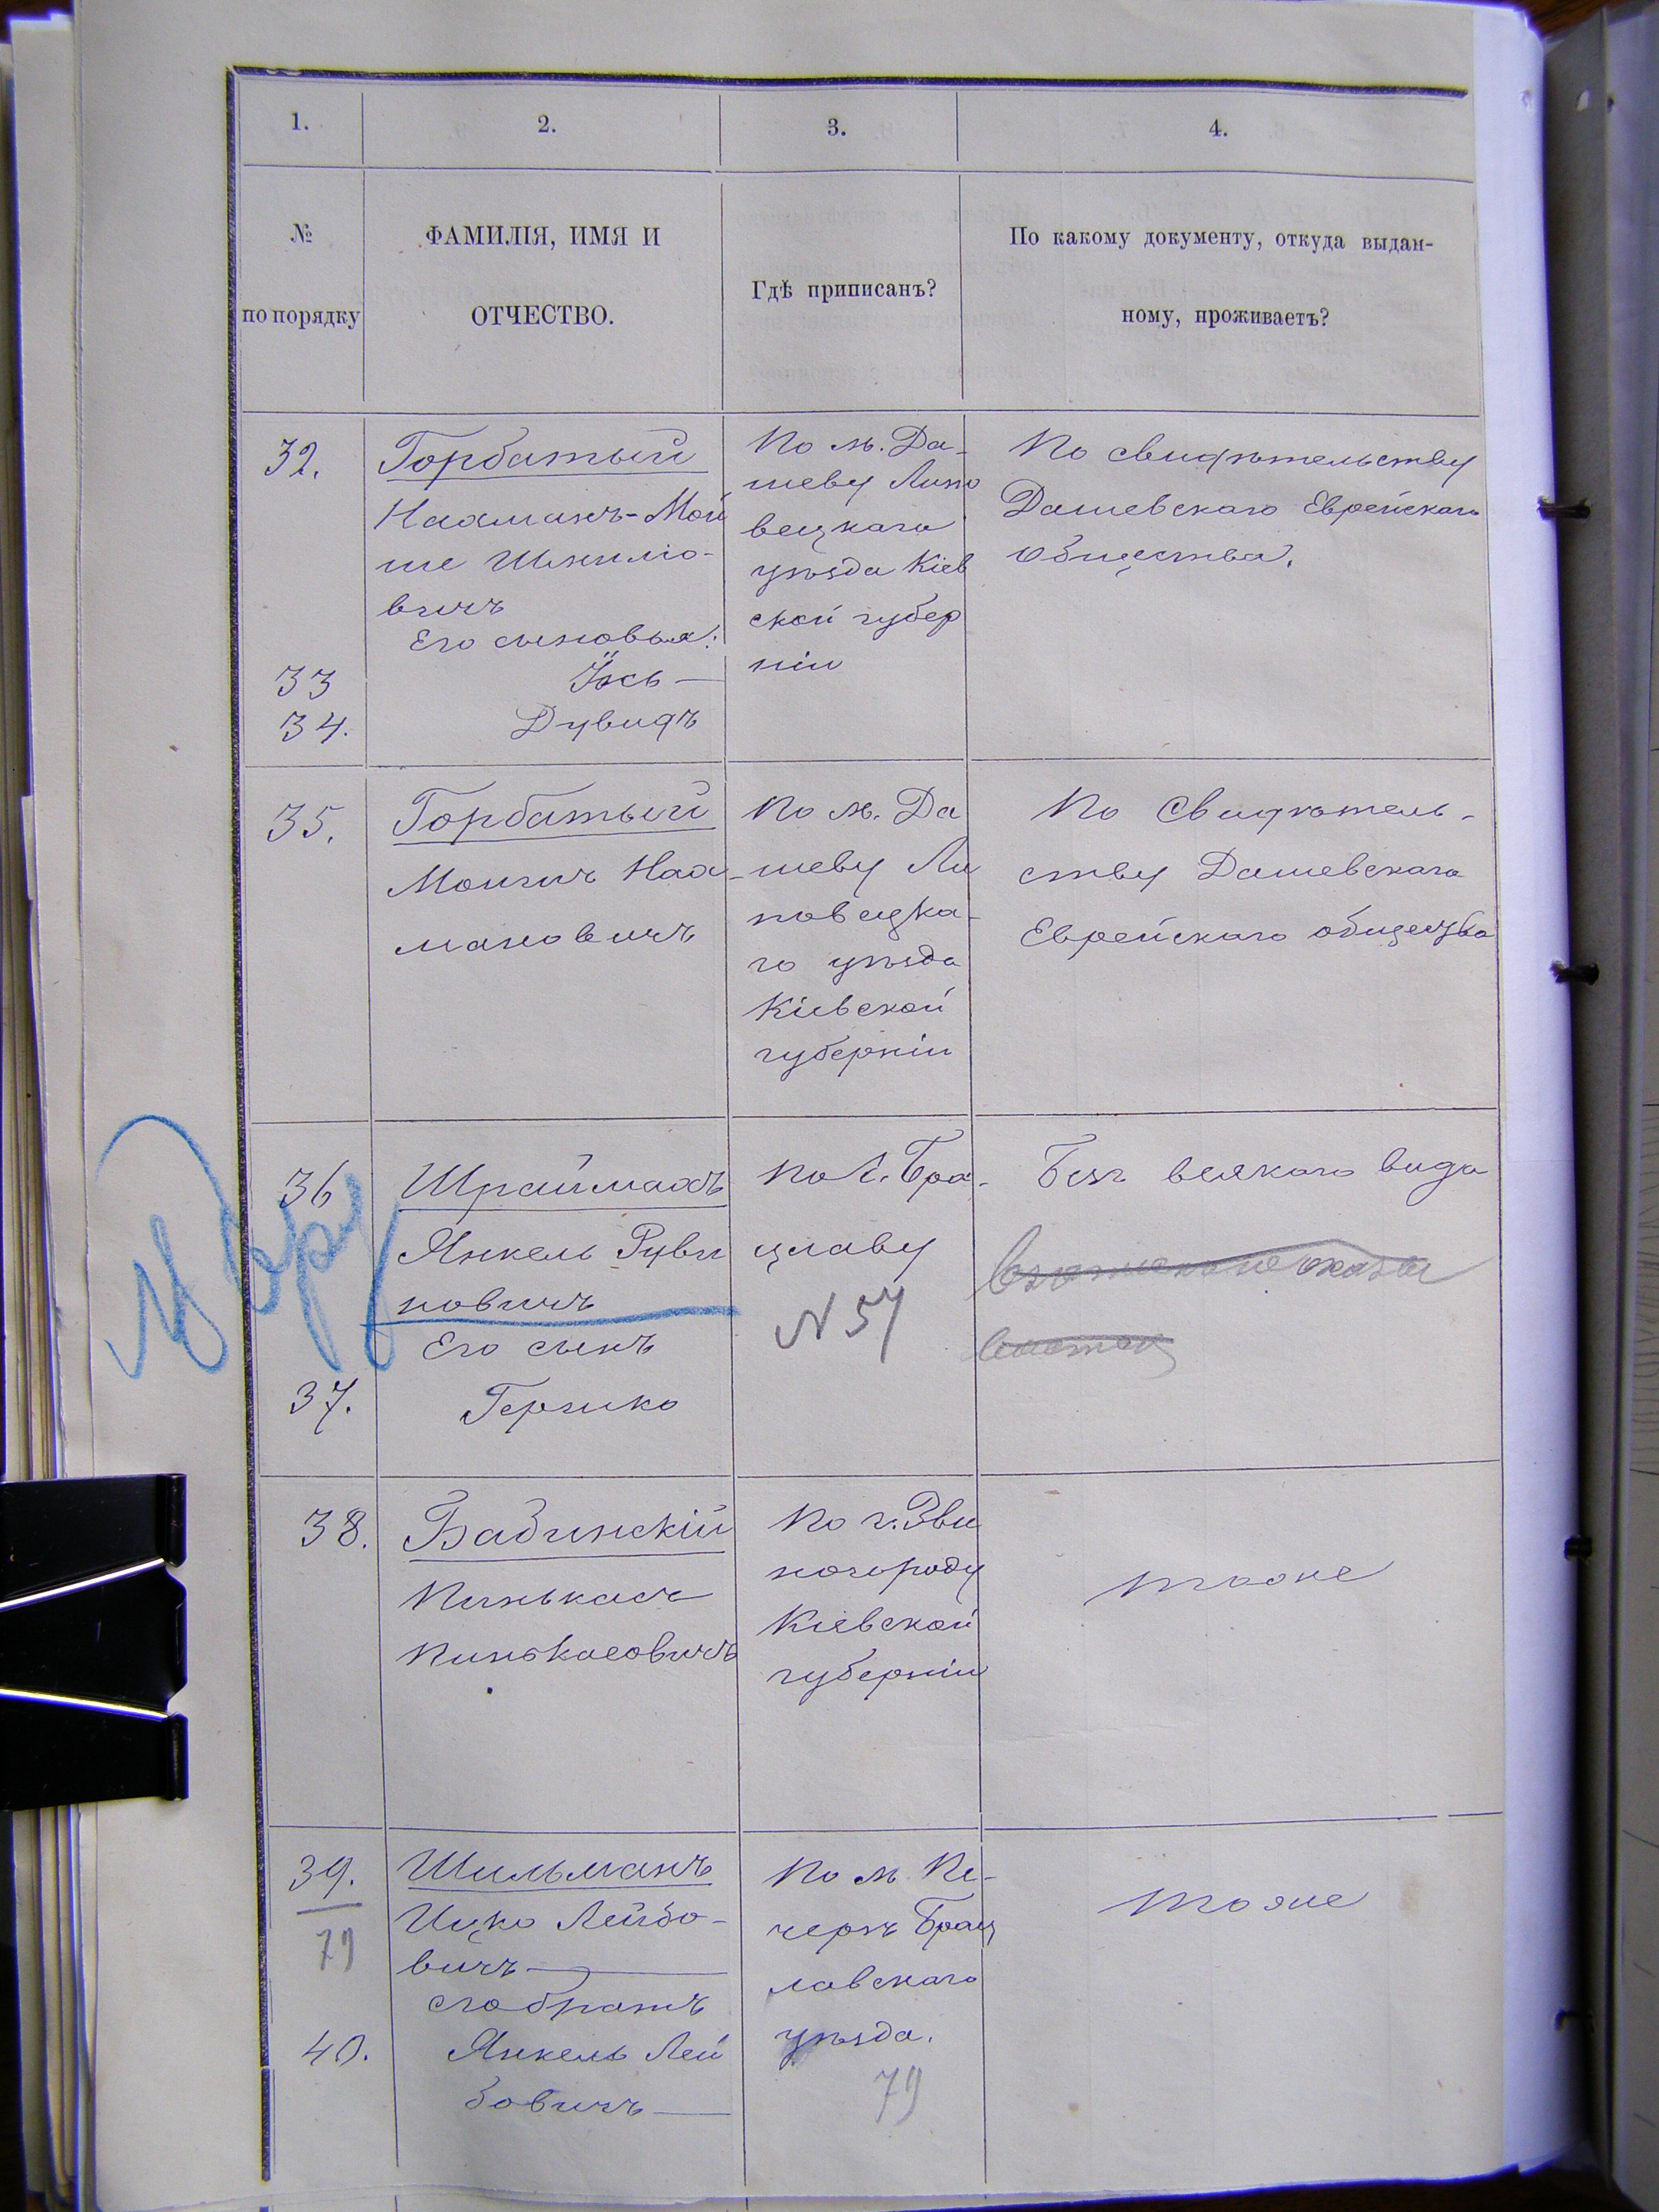 1. 2. 3. 4.
№
по порядку
ФАМИЛІЯ, ИМЯ И
ОТЧЕСТВО.
Гдѣ приписанъ?
По какому документу, откуда выдан-
ному, проживаетъ?
32.
Горбатый
Нахманъ-Мой
ше Шмилио-
вичъ
Его сыновья:
33
Іось
34.
Дувидъ
По м. Да-
шеву Липо
вецкаго
уѣзда Кіев
ской губер
ніи
По свидѣтельству
Дашевскаго Еврейскаго
общества.
35.
Горбатый
Мошичъ Нах-
мановичъ
По м. Да
шеву Ли
повецка-
го уѣзда
Кіевской
губерніи
По свидѣтель-
ству Дашевскаго
Еврейскаго общества
36
Шраймахъ
Янкель Руви
новичъ
Его сынъ
37.
Гершко
По г. Бра-
цлаву
N 57
Безъ всякаго вида
38.
Бабинскій
Пинькасъ
Пинькасовичъ
По г. Зве
ногороду
Кіевской
губерніи
тоже
39.
79
Шильманъ
Ицко Лейбо-
вичъ
его братъ
40.
Янкель Лей
бовичъ
По м. Пе-
черѣ Брац
лавскаго
уѣзда.
79
тоже